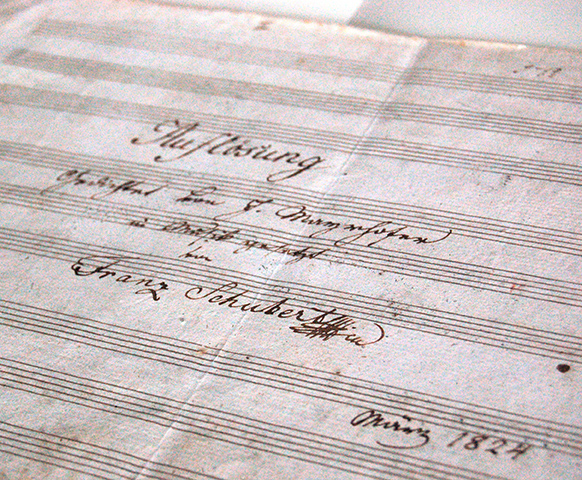 Auflösung
Gedichtet von J. Mayrhofer
in Musik gesetzt
von
Franz Schubert
März 1824